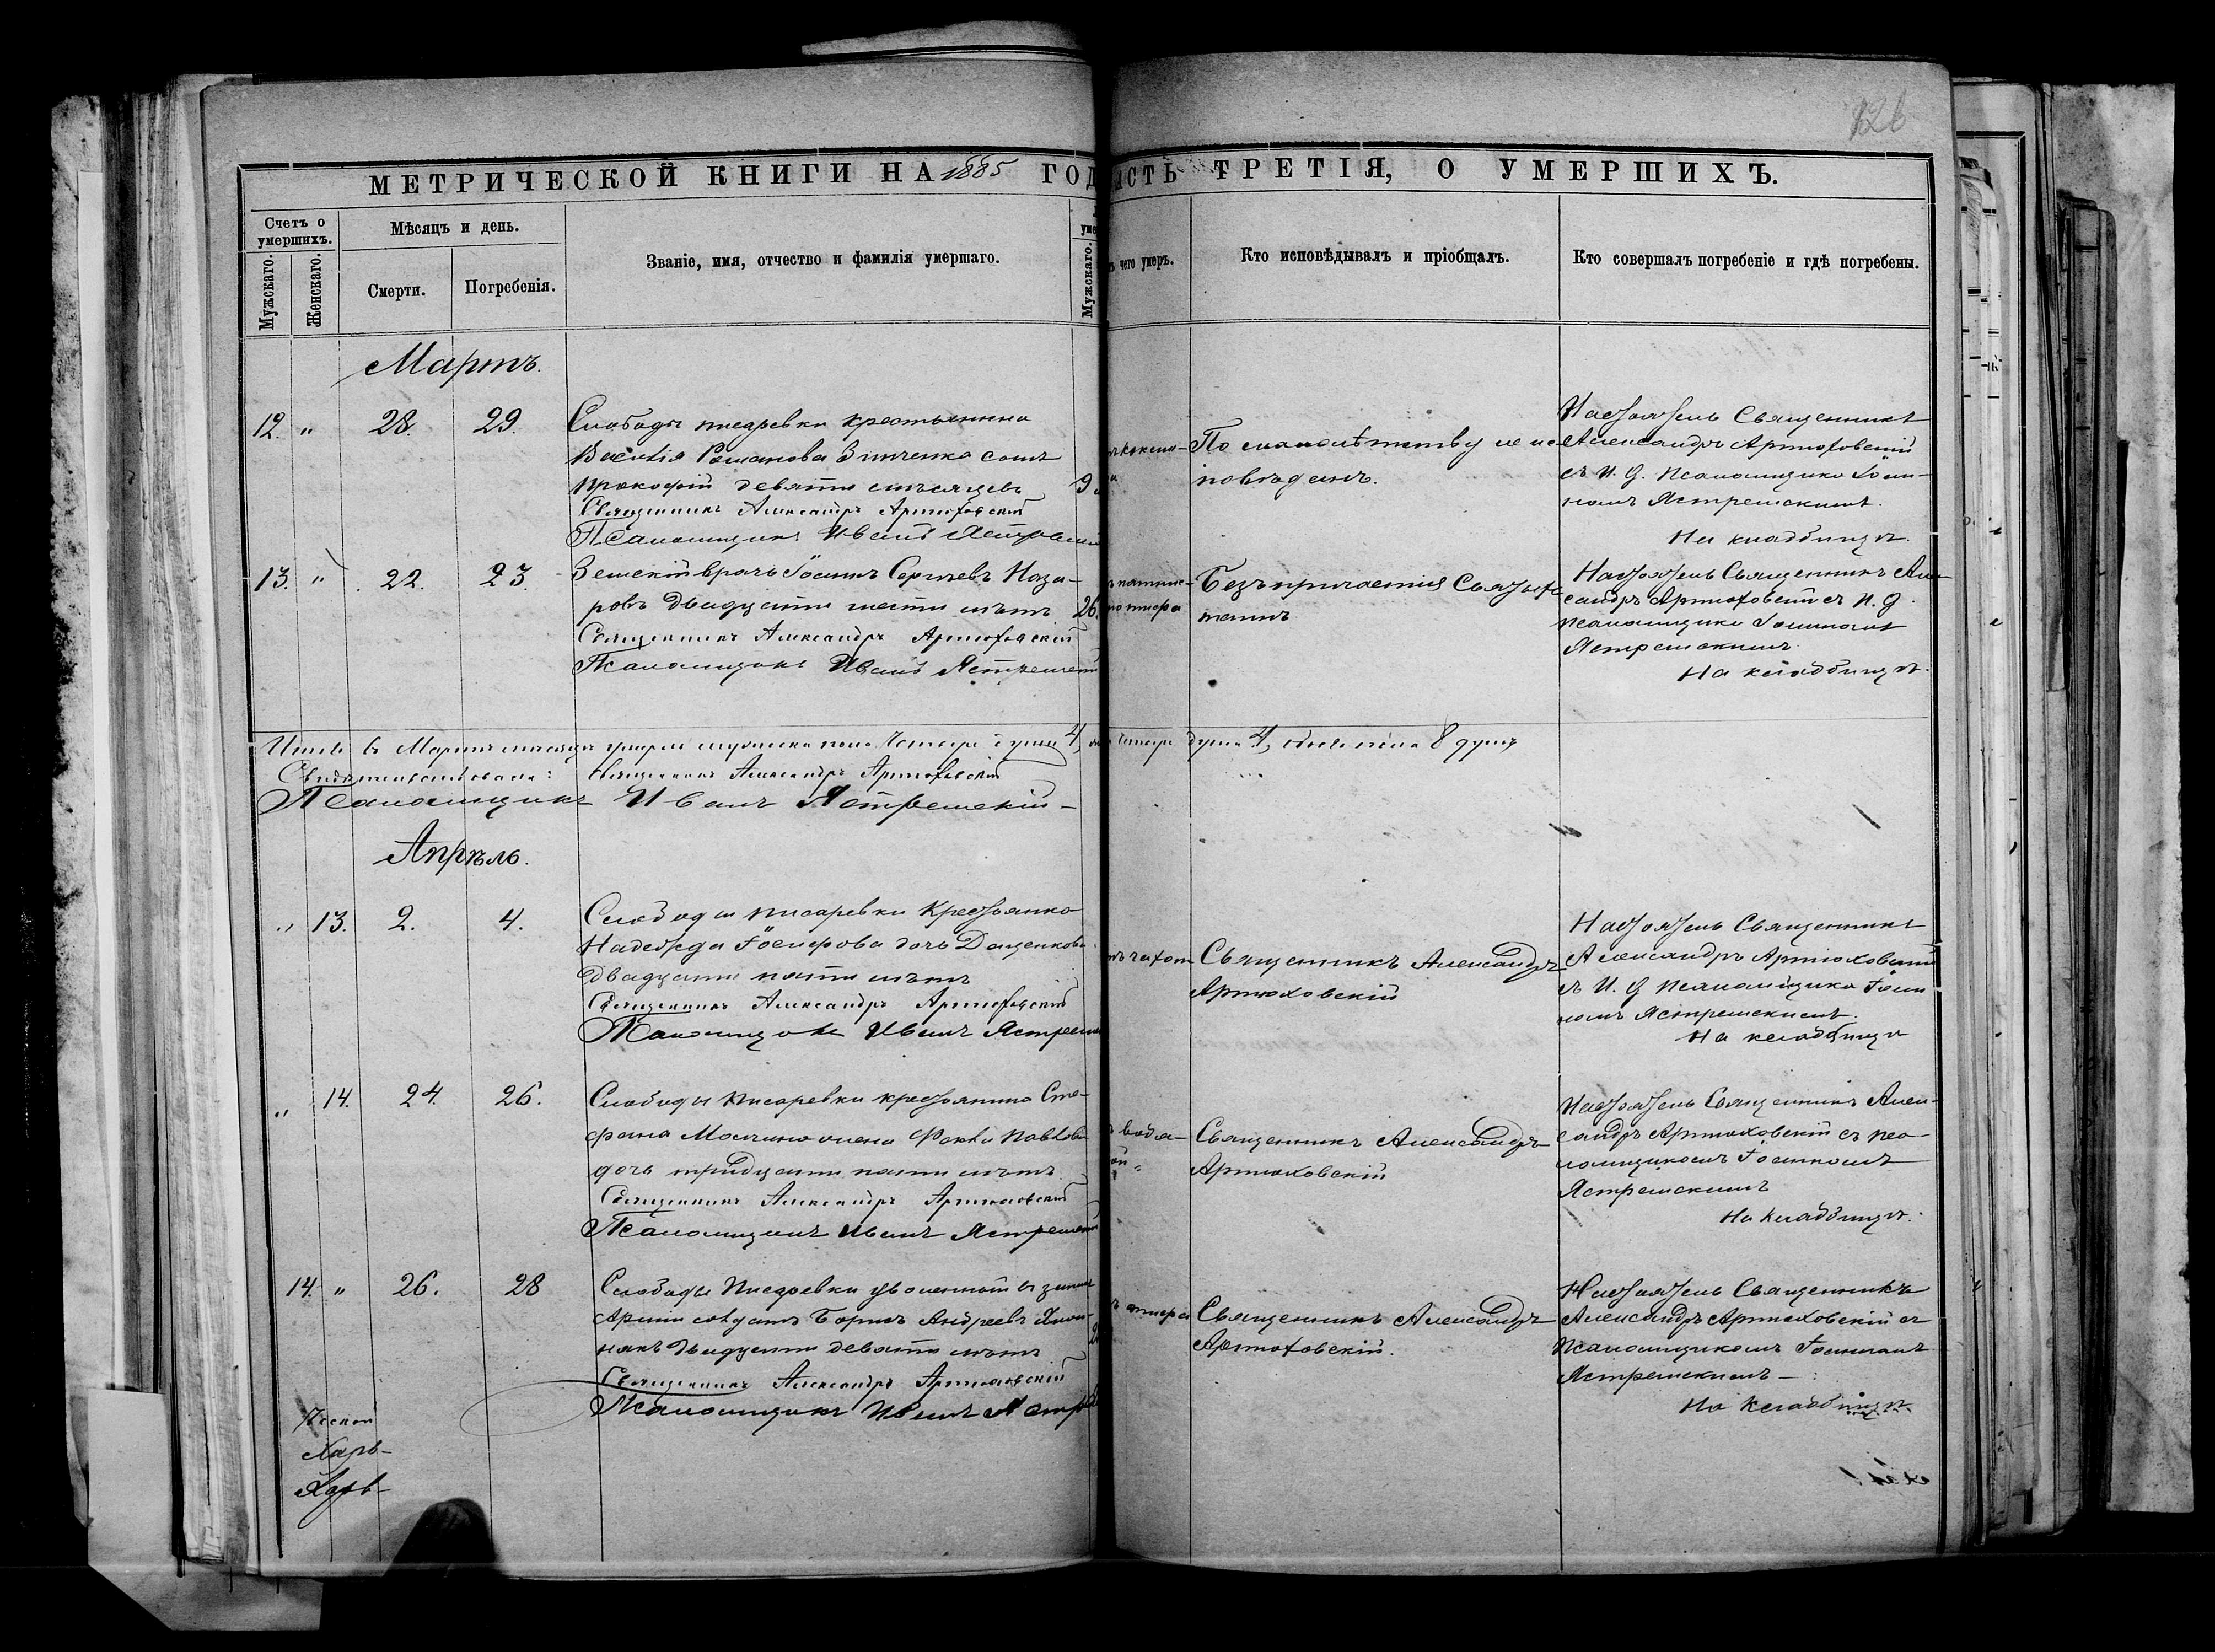 126
МЕТРИЧЕСКОЙ КНИГИ НА 1885 ГОД
АСТЬ ТРЕТІЯ, О УМЕРШИХЪ.
Счетъ о умершихъ.
Мужскаго.
Женскаго.
Мѣсяцъ и день.
Смерти.
Погребенія.
Званіе, имя, отчество и фамилія умершаго.
Мужскаго.
чего умеръ.
Кто исповѣдывалъ и пріобщалъ.
Кто совершалъ погребеніе и гдѣ погребены.
Мартъ.
12. " 28. 29.
Слободы Писаревки крестьянина
Василія Романова Зинченка сынъ
Прокофій девяти мѣсяцевъ
9
Священникъ Александръ Артюховскій
Псаломщикъ Иванъ Ястремскій
По малолѣтству не ис-
повѣданъ.
Настоятель Священникъ
Александръ Артюховскій
съ И. Д. Псаломщика Іоан-
номъ Ястремскимъ.
На кладбищѣ.
13. " 22. 23.
Земскій врачъ Іоаннъ Сергѣевъ Наза-
ровъ двадцати шести лѣтъ
26.
Священникъ Александръ Артюховскій
Псаломщикъ Иванъ Ястремскій
Безъ причастія Святыхъ
таинъ
Настоятель Священникъ Алек-
сандръ Артюховскій съ И. Д.
псаломщика Іоанномъ
Ястремскимъ.
На кладбищѣ.
Итого въ Мартѣ мѣсяцѣ умерли мужеска пола четыре души 4,
четыре души 4, обоего пола 8 душъ
Свидѣтельствовали: Священникъ Александръ Артюховскій
Псаломщикъ Иванъ Ястремскій
Апрѣль.
" 13. 2. 4.
Слободы Писаревки Крестьянка
Надежда Іосифова дочь Даценкова
двадцати пяти лѣтъ
Священникъ Александръ Артюховскій
Псаломщикъ Иванъ Ястремскій
чахот
Священникъ Александръ
Артюховскій
Настоятель Священникъ
Александръ Артюховскій
съ И. Д. псаломщика Іоан
номъ Ястремскимъ.
На кладбищѣ
" 14. 24. 26.
Слободы Писаревки крестьянина Сте-
фана
дочь тридцати пяти лѣтъ
Священникъ Александръ Артюховскій
Псаломщикъ Иванъ Ястремскій
водя-
Священникъ Александръ
Артюховскій
Настоятель Священникъ Алек-
сандръ Артюховскій съ пса-
ломщикомъ Іоанномъ
Ястремскимъ
На кладбищѣ.
14. " 26. 28
Слободы Писаревки уволенный въ запасъ
Арміи солдатъ Борисъ Андреевъ
двадцати девяти лѣтъ
Священникъ Александръ Артюховскій
Псаломщикъ Иванъ Ястр
Священникъ Александръ
Артюховскій.
Настоятель Священникъ
Александръ Артюховскій съ
Псаломщикомъ Іоанномъ
Ястремскимъ
На кладбищѣ.
Харь-
Харь-